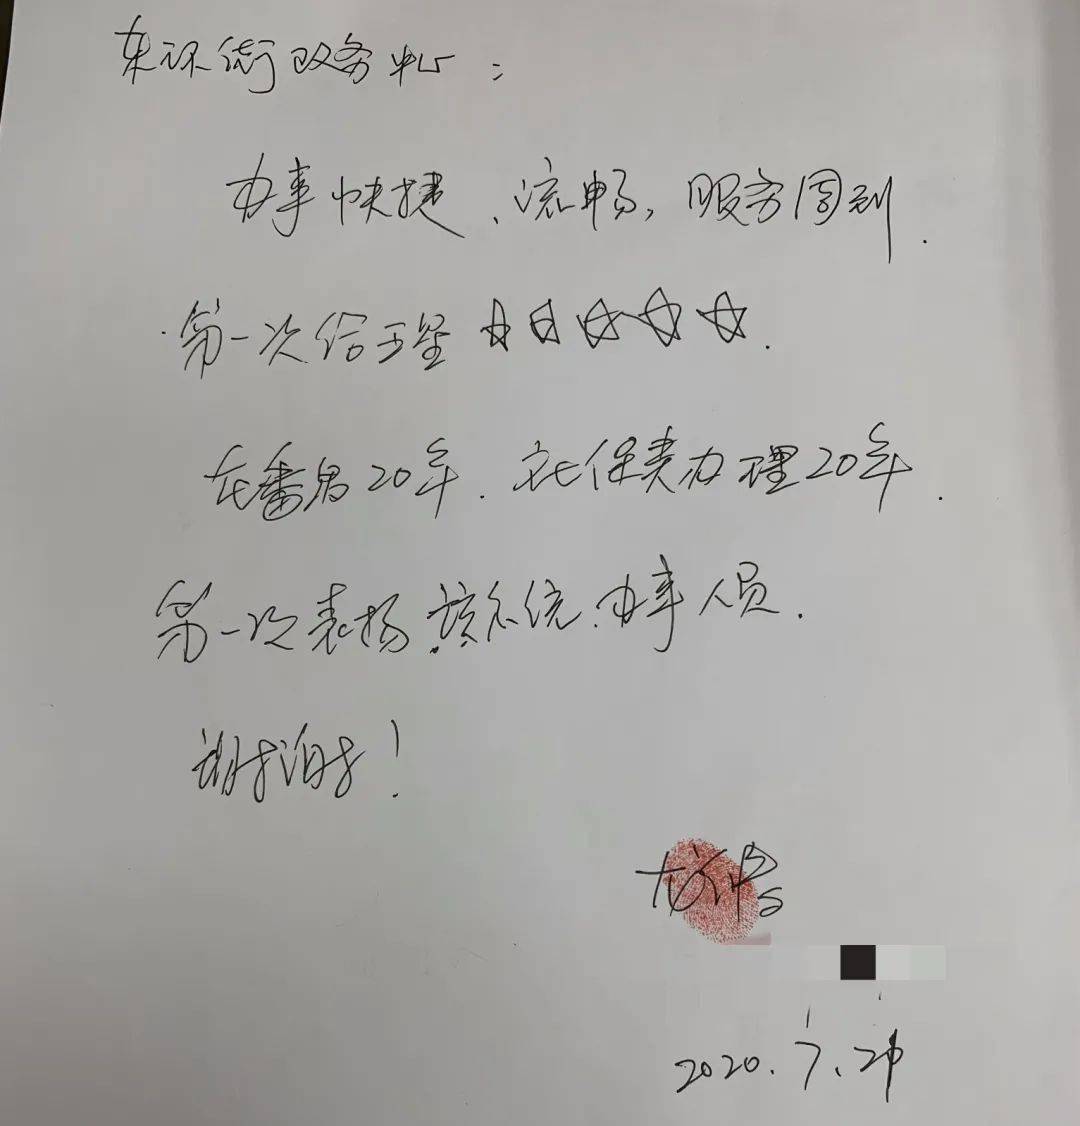 东环街政务中心：
办事快捷、流畅，服务周到.
第一次给五星 ☆☆☆☆☆.
在番禺20年. 社保费办理20年.
第一次表扬该系统.办事人员.
谢谢！
2020.7.